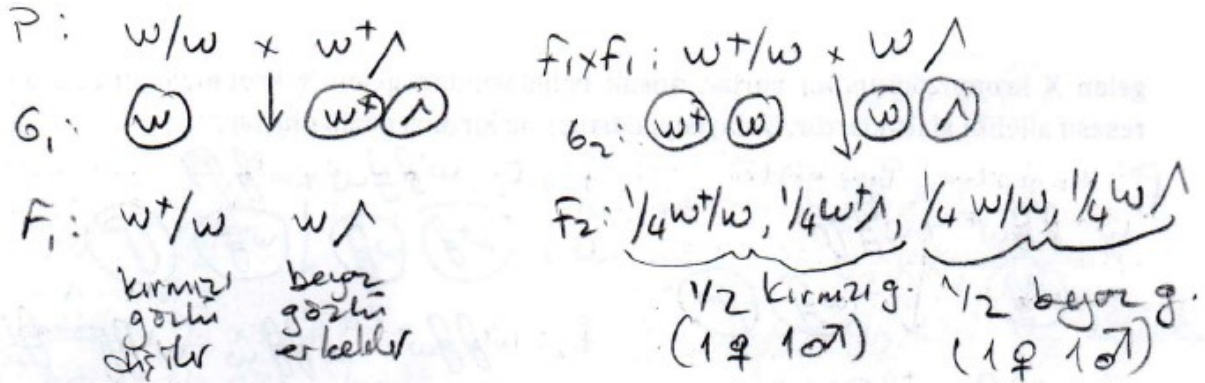 P: w/w x w⁺/^
G₁: w w⁺ ^
F₁: w⁺/w w/^
kırmızı gözlü dişiler
beyaz gözlü erkekler
F₁xF₁: w⁺/w x w/^
G₂: w⁺ w w ^
F₂: 1/4 w⁺/w, 1/4 w⁺/^, 1/4 w/w, 1/4 w/^
1/2 kırmızı g. 1/2 beyaz g.
(1♀ 1♂) (1♀ 1♂)